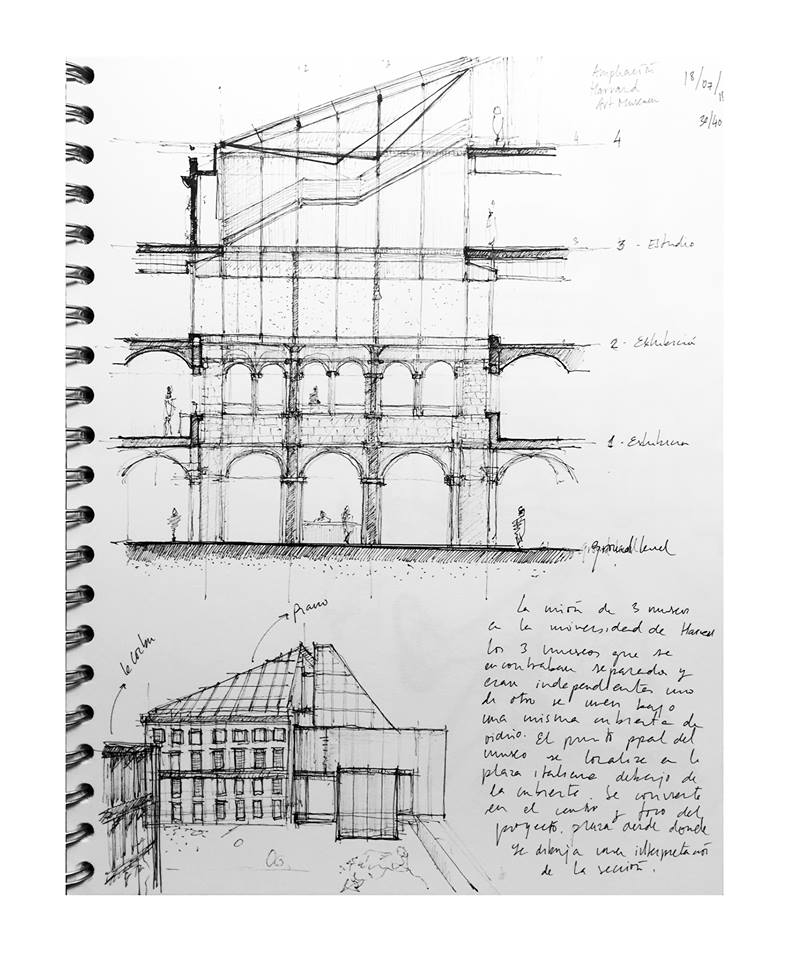 Ampliación
Harvard
Art Museum
18/07/1
30/40
4
4
3
3 - Estudio
2 - Exhibición
1 - Exhibición
ground level
piano
le corbu
La unión de 3 museos
en la universidad de Harvard
los 3 museos que se
encontraban separados y
eran independientes uno
de otro se unen bajo
una misma cubierta de
vidrio. El punto ppal del
museo se localiza en la
plaza italiana debajo de
la cubierta. Se convierte
en el centro y foso del
proyecto. plaza desde donde
se dibuja una interpretación
de la sección.